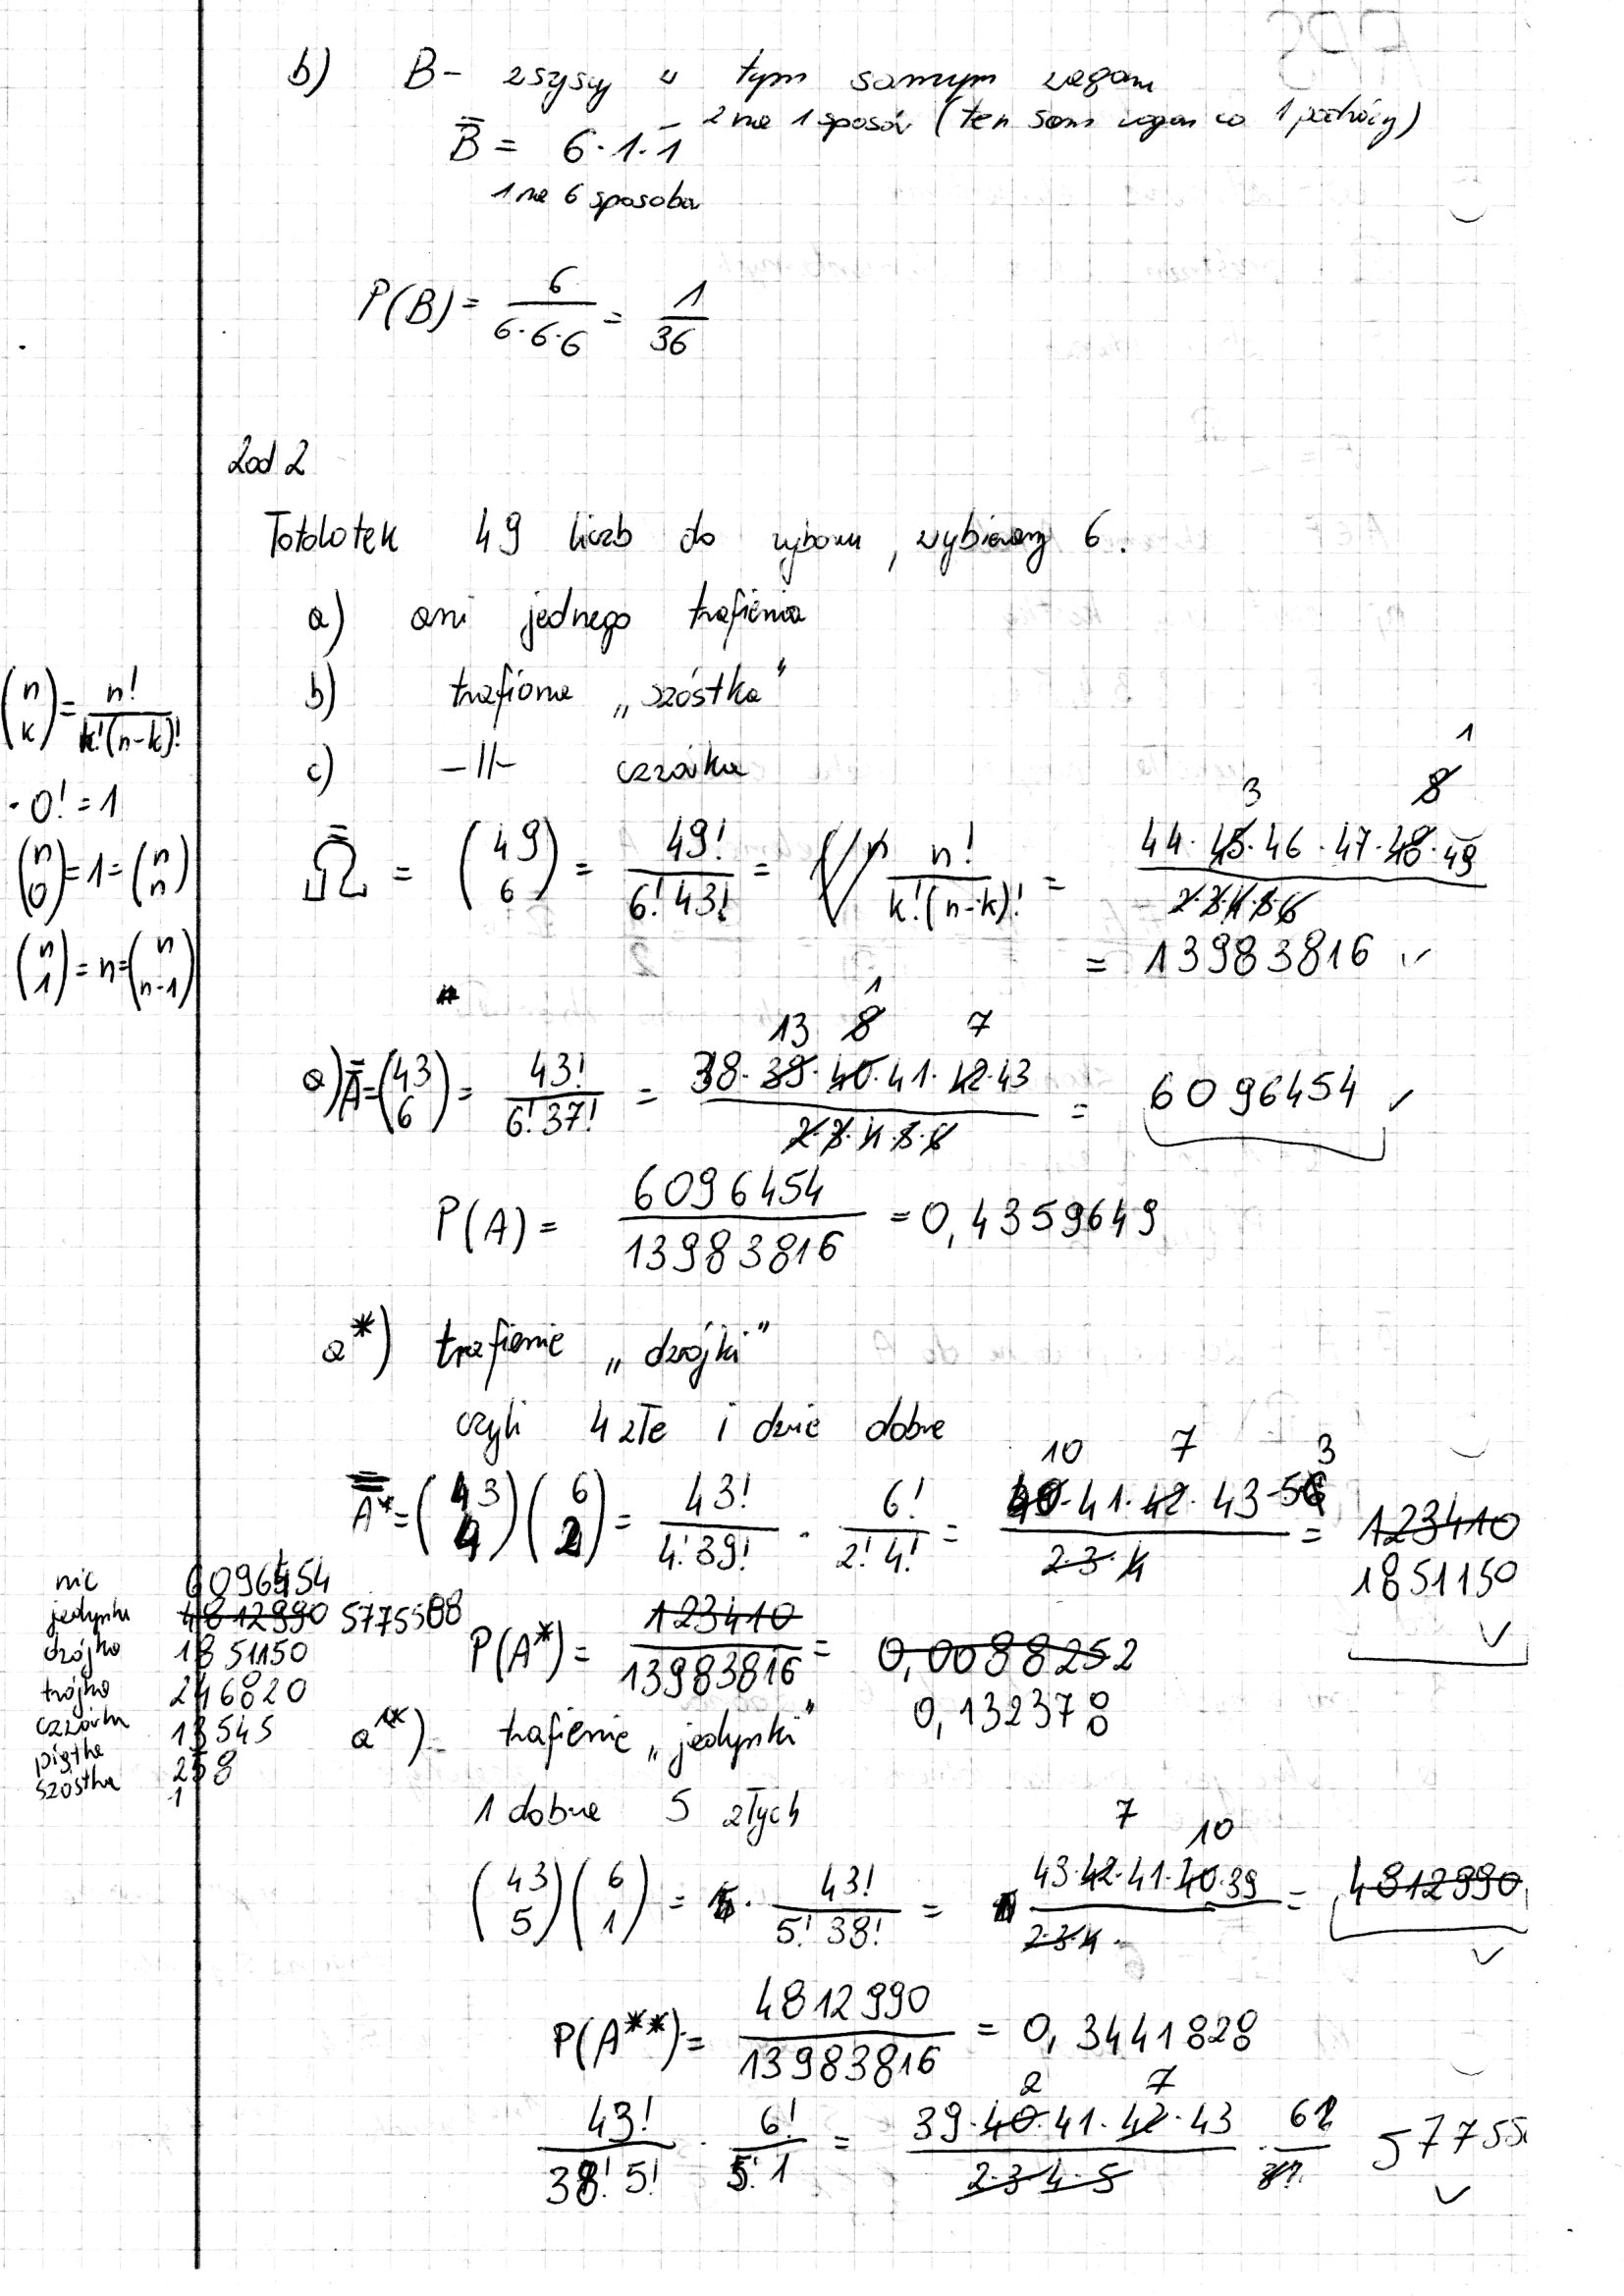 b) B - wszyscy w tym samym wagonie
2 na 1 sposób (ten sam wagon co 1 podróżny)
B̿ = 6·1·1
1 na 6 sposobów
P(B) = 6/(6·6·6) = 1/36
Zad 2
Totolotek 49 liczb do wyboru, wybieramy 6.
a) ani jednego trafienia
b) trafiona „szóstka"
c) -||- czwórka
(n k) = n!/(k!(n-k)!)
· 0! = 1
(n 0) = 1 = (n n)
(n 1) = n = (n n-1)
Ω̿ = (49 6) = 49!/(6! 43!) = n!/(k!(n-k)!) = (44·45·46·47·48·49)/(2·3·4·5·6)
3 8 1
= 13983816 ✓
13 8 1 7
a) A̿ = (43 6) = 43!/(6! 37!) = (38·39·40·41·42·43)/(2·3·4·5·6) = 6096454 ✓
P(A) = 6096454/13983816 = 0,4359649
a*) trafienie „dwójki"
czyli 4 złe i dwie dobre
10 7 3
A̿* = (43 4)(6 2) = 43!/(4! 39!) · 6!/(2! 4!) = (40·41·42·43·5·6)/(2·3·4) = 123410
1851150 ✓
P(A*) = 123410/13983816 = 0,0088252
0,132378
nic 6096454
jedynka 4812990 5775588
dwójka 1851150
trójka 246820
czwórka 13545
piątka 258
szóstka 1
a**) trafienie „jedynki"
1 dobra 5 złych
7 10
(43 5)(6 1) = 5 · 43!/(5! 38!) = (43·42·41·40·39)/(2·3·4) = 4812990 ✓
P(A**) = 4812990/13983816 = 0,3441828
2 7
43!/(38! 5!) · 6!/(5! 1) = (39·40·41·42·43)/(2·3·4·5) · 57755 ✓